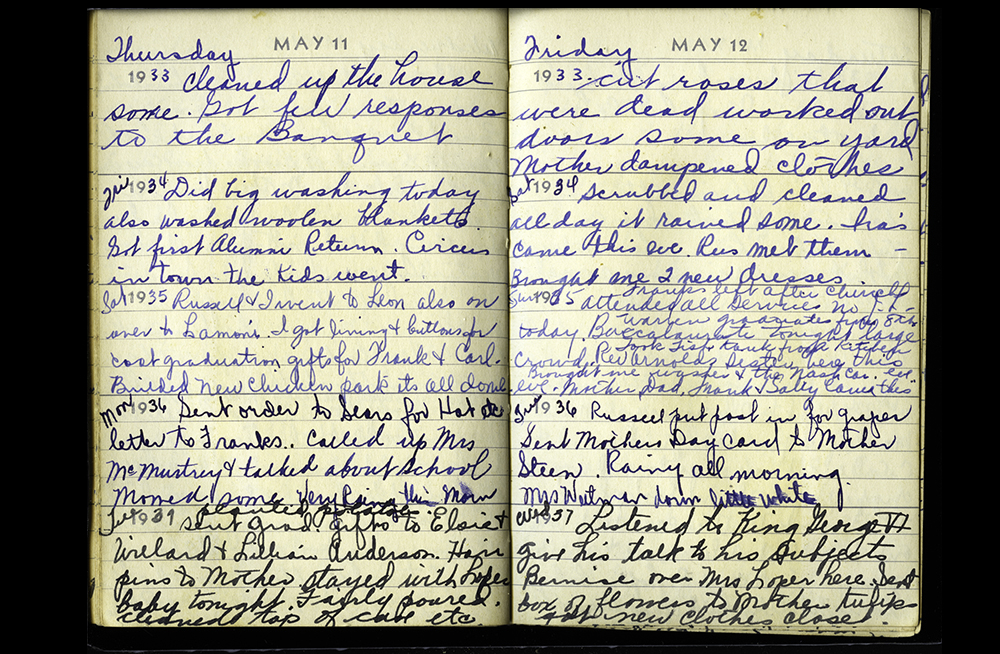 Thursday MAY 11
1933 Cleaned up the house
some. Got few responses
to the Banquet
Fri 1934 Did big washing today
also washed woolen blankets.
Got first Alumni Return. Circus
in town the kids went.
Sat 1935 Russell & I went to Leon also on
over to Lamoni. I got lining & buttons for
coat graduation gifts for Frank & Carl.
Builded new chicken park its all done.
Mon 1936 Sent order to Sears for Hat etc
letter to Franks. Called up Mrs
McMurtrey & talked about School
Momed some. Very Rainy this Morn
planted potatoes.
Tue 1937 sent grad. gifts to Elsie &
Willard & Lillian Anderson. Hair
pins to Mother stayed with Loper
baby tonight. Fairly poured.
cleaned top of cave etc.
Friday MAY 12
1933. cut roses that
were dead worked out
doors some on yard
Mother dampened clothes
Sat 1934 Scrubbed and cleaned
all day it rained some. Ira's
came this eve. Rus met them -
Brought me 2 new dresses
Sun 1935 Franks left after Church
attended all Services
Warren graduates from 8th
today. Baccalaureate tonight large
Took Fish tank from kitchen
Crowd. Rev Arnolds
Brought me & the Nash car. eve
eve. Mother Dad, Frank & Sally Came this
Tue 1936 Russell put post in for grapes
Sent Mothers Day card to Mother
Steen. Rainy all morning.
Mrs Weitman down little white
Wed 1937 Listened to King George VI
give his talk to his Subjects
Bernise over Mrs Loper here. Sent
box of flowers to Mother tulips
got new clothes closet.